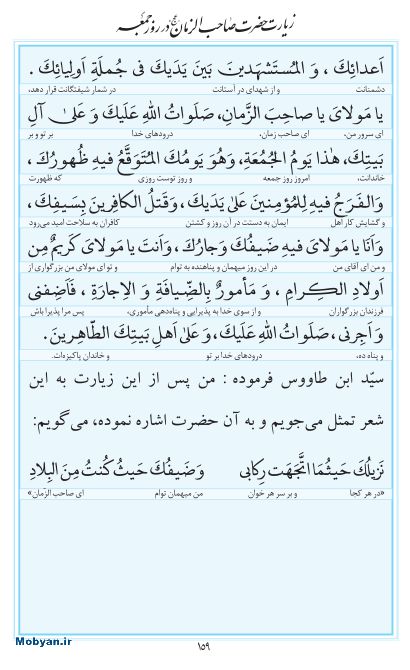 زیارت حضرت صاحب الزمان در روز جمعه
اَعدائِكَ ، وَ الْمُستَشهَدينَ بَينَ يَدَيكَ فى جُملَةِ اَولِيائِكَ .
دشمنانت و از شهدای در آستانت در شمار شیفتگانت قرار دهد،
يا مَولاىَ يا صاحِبَ الزَّمانِ، صَلَواتُ اللهِ عَلَيكَ وَ عَلىٰ آلِ
ای سرور من، ای صاحب زمان، درودهای خدا بر تو و بر
بَيتِكَ، هٰذا يَومُ الجُمُعَةِ، وَهُوَ يَومُكَ المُتَوَقَّعُ فيهِ ظُهورُكَ،
خاندانت، امروز روز جمعه و روز توست روزی که ظهورت
وَالفَرَجُ فيهِ لِلمُؤمِنينَ عَلىٰ يَدَيكَ، وَقَتلُ الكافِرينَ بِسَيفِكَ،
و گشایش کار اهل ایمان به دستت در آن روز و کشتن کافران به سلاحت امید می‌رود
وَاَنَا يا مَولاىَ فيهِ ضَيفُكَ وَجارُكَ، وَاَنتَ يا مَولاىَ كَريمٌ مِن
و من ای آقای من در این روز میهمان و پناهنده به توام و تو ای مولای من بزرگواری از
اَولادِ الكِرامِ ، وَ مَأمورٌ بِالضِّيافَةِ وَ الاِجارَةِ ، فَاَضِفنى
فرزندان بزرگواران و از سوی خدا به پذیرایی و پناه‌دهی مأموری، پس مرا پذیرا باش
وَ اَجِرنى، صَلَواتُ اللهِ عَلَيكَ، وَ عَلىٰ اَهلِ بَيتِكَ الطّاهِرينَ.
و پناه ده، درودهای خدا بر تو و خاندان پاکیزه‌ات.
سیّد ابن طاووس فرموده : من پس از این زیارت به این
شعر تمثل می‌جویم و به آن حضرت اشاره نموده، می‌گویم:
نَزيلُكَ حَيثُ مَا اتَّجَهَت رِكابى وَ ضَيفُكَ حَيثُ كُنتُ مِنَ البِلادِ
«در هر کجا و بر سر هر خوان من میهمان توام ای صاحب الزمان»
۱۵۹
Mobyan.ir